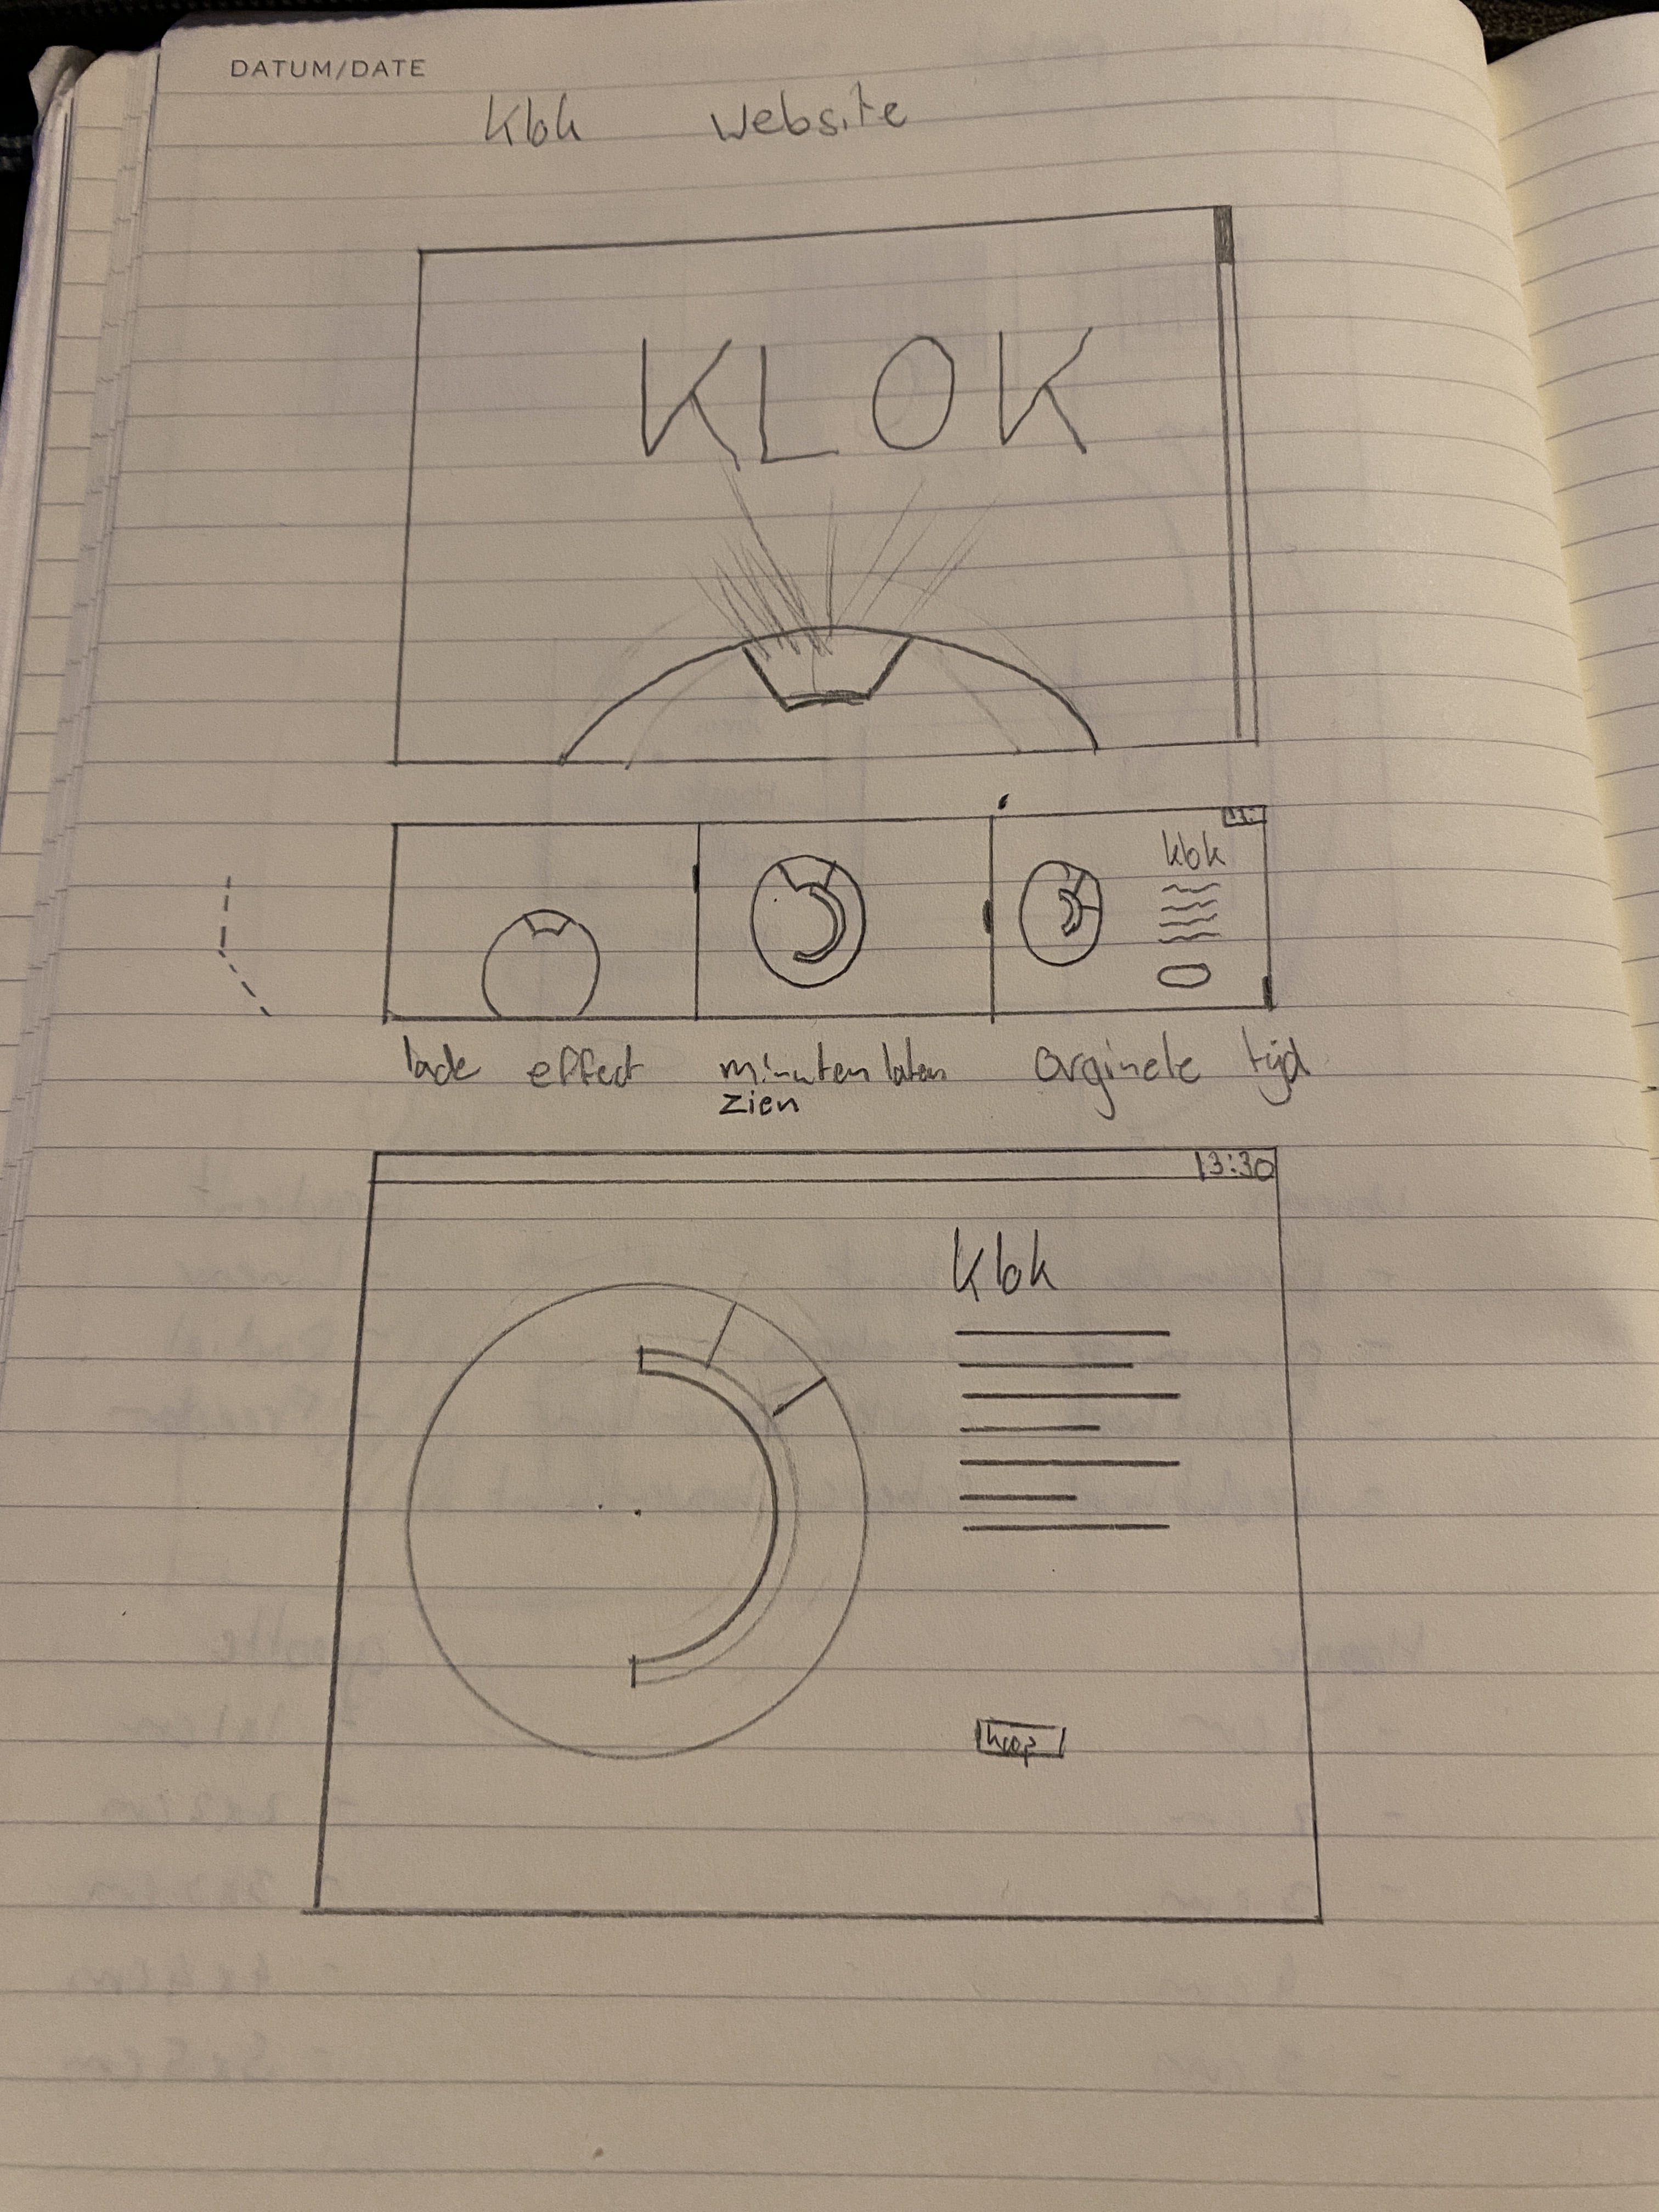 DATUM/DATE
Klok website
KLOK
klok
lade effect
minuten laten
zien
orginele tijd
13:30
Klok
koop